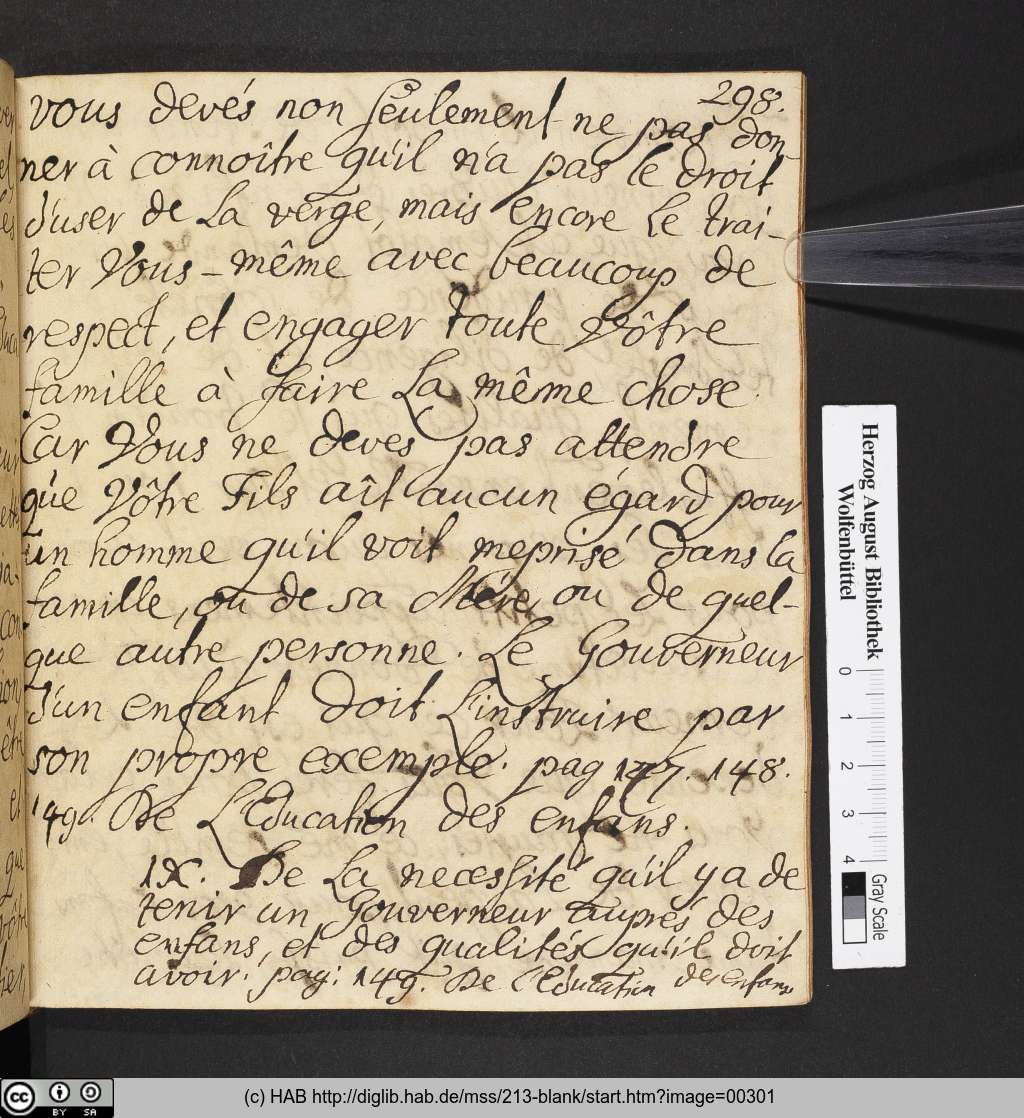 298.
vous devés non seulement ne pas don-
ner à connoître qu'il n'a pas le droit
d'user de La verge, mais encore Le trai-
ter Vous-même avec beaucoup de
respect, et engager toute Vôtre
famille à faire La même chose.
Car Vous ne deves pas attendre
que Vôtre Fils aît aucun égard pour
un homme qu'il voit meprisé dans la
famille, ou de sa Mére, ou de quel-
que autre personne. Le Gouverneur
d'un enfant doit L'instruire par
son propre exemple. pag 147. 148.
149. De L'Education des enfans.
IX. De La necessité qu'il y a de
tenir un Gouverneur auprés des
enfans, et des qualités qu'il doit
avoir. pag: 149. De l'Education des enfans
Herzog August Bibliothek
Wolfenbüttel
0 1 2 3 4
Gray Scale
cc BY SA
(c) HAB http://diglib.hab.de/mss/213-blank/start.htm?image=00301